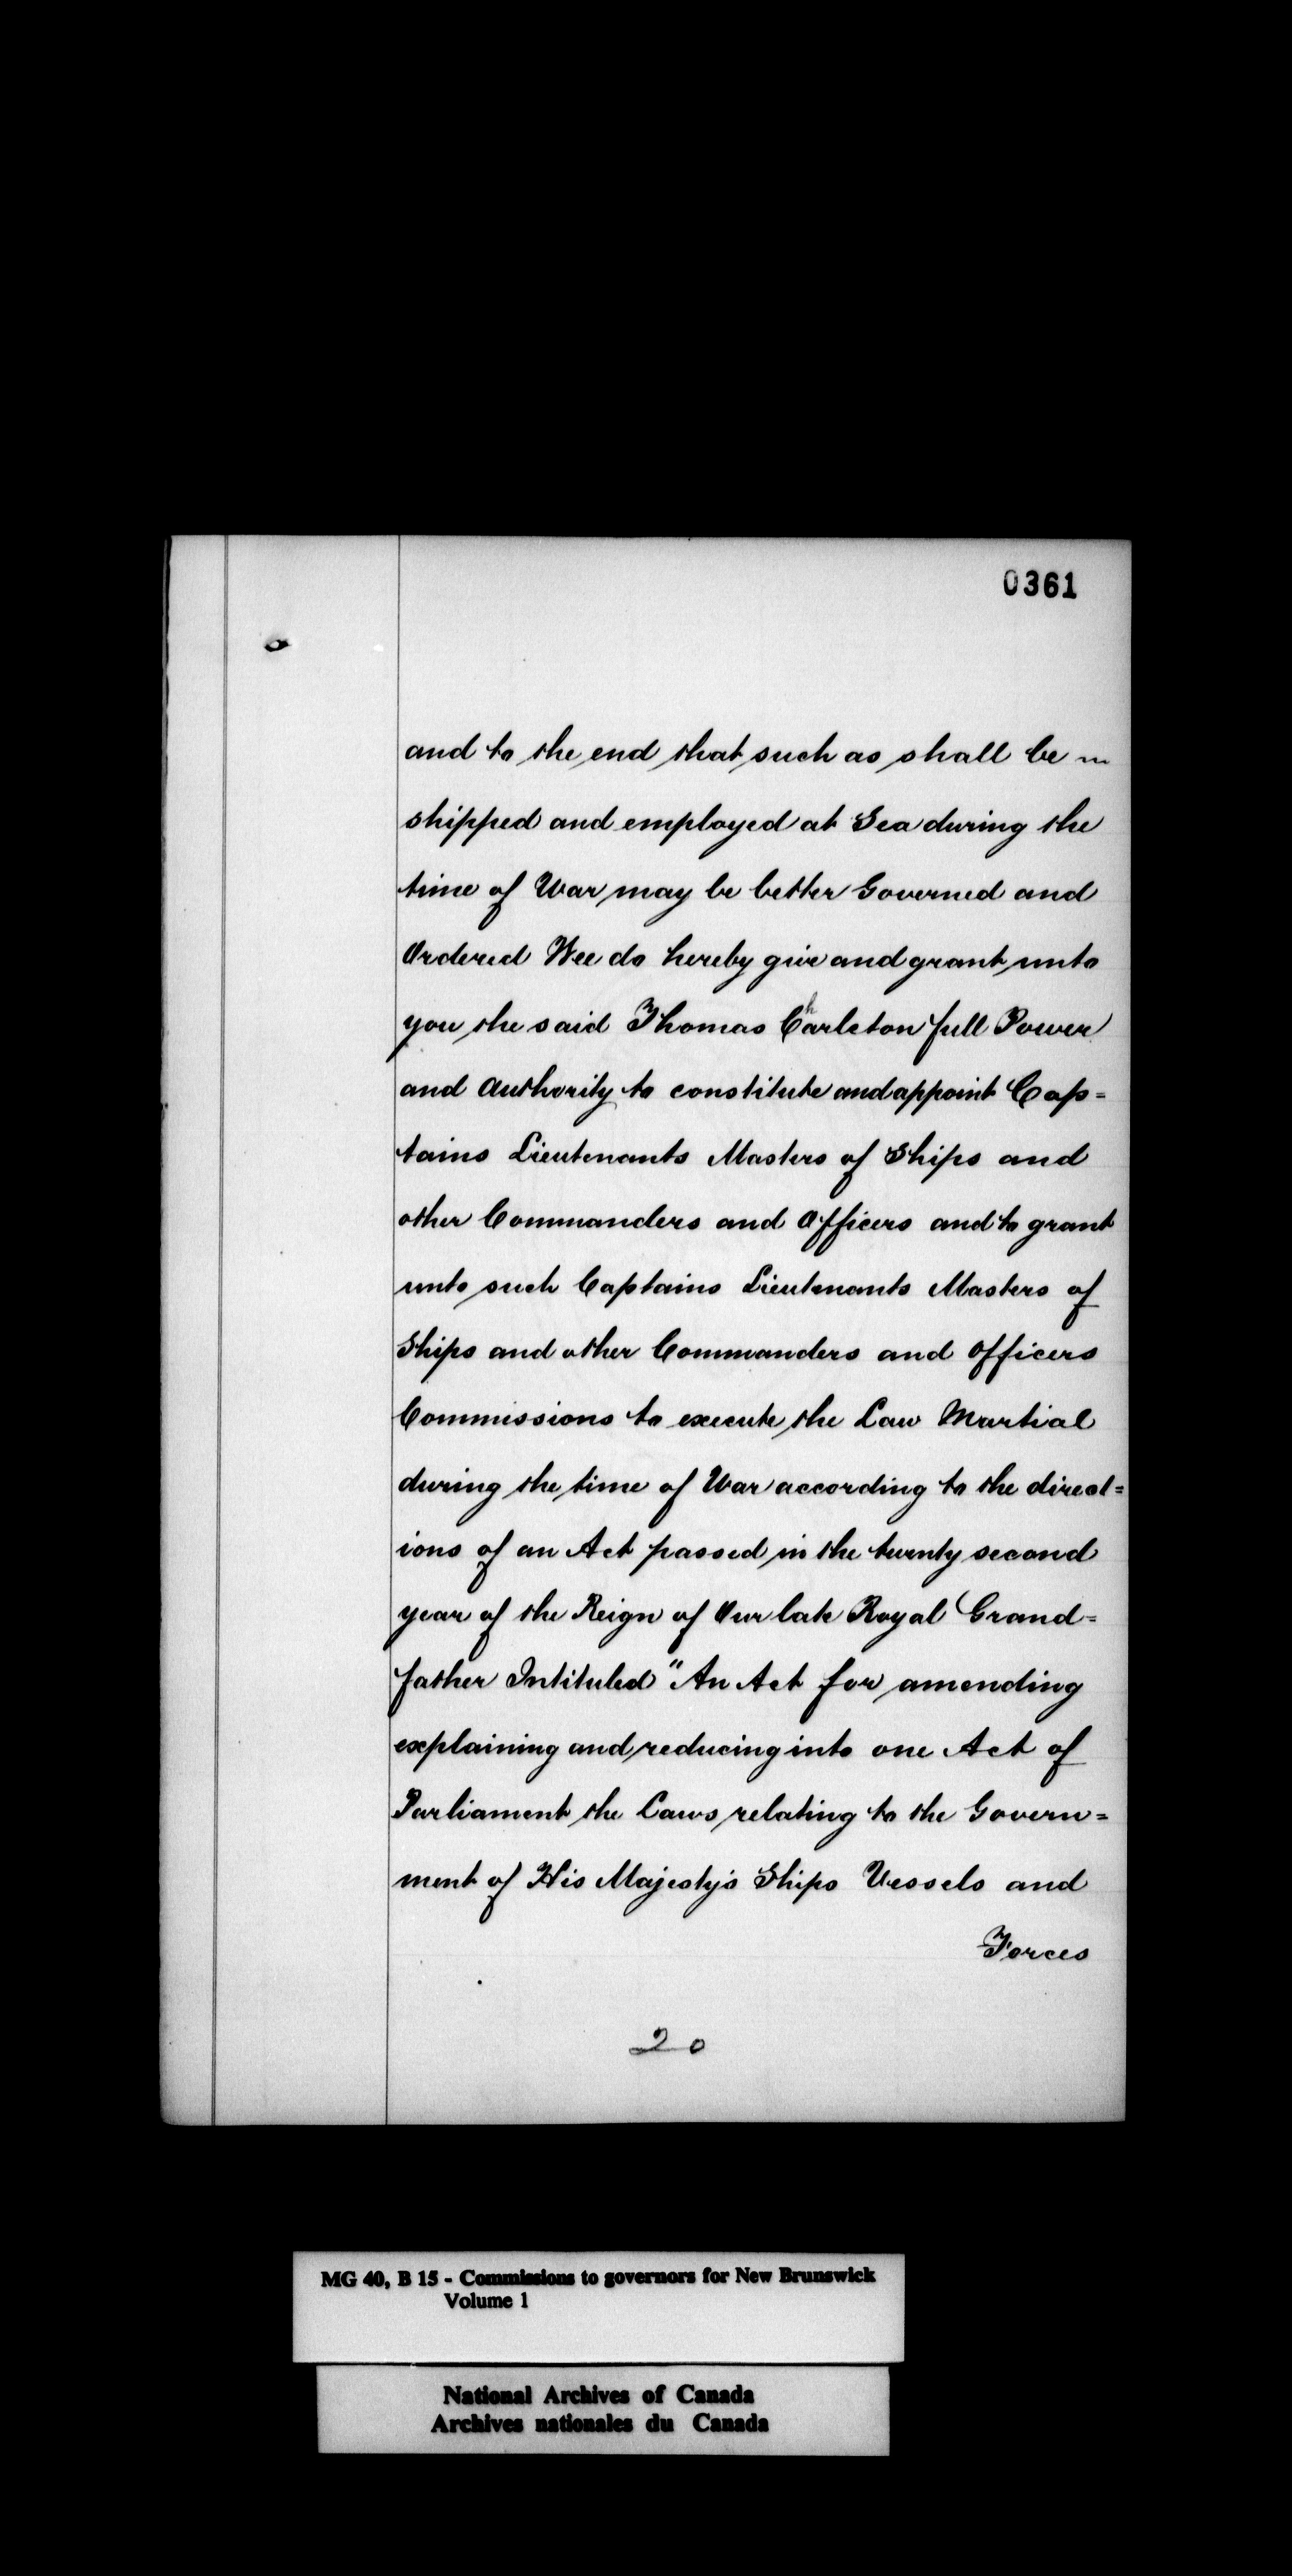 0361
and to the end that such as shall be
shipped and employed at Sea during the
time of War may be better Governed and
Ordered Wee do hereby give and grant unto
you the said Thomas Carleton full Power
and Authority to constitute and appoint Cap=
tains Lieutenants Masters of Ships and
other Commanders and Officers and to grant
unto such Captains Lieutenants Masters of
Ships and other Commanders and Officers
Commissions to execute the Law Martial
during the time of War according to the direct=
ions of an Act passed in the twenty second
year of the Reign of Our late Royal Grand=
father Intituled "An Act for amending
explaining and reducing into one Act of
Parliament the Laws relating to the Govern=
ment of His Majesty's Ships Vessels and
Forces
20
MG 40, B 15 - Commissions to governors for New Brunswick
Volume 1
National Archives of Canada
Archives nationales du Canada